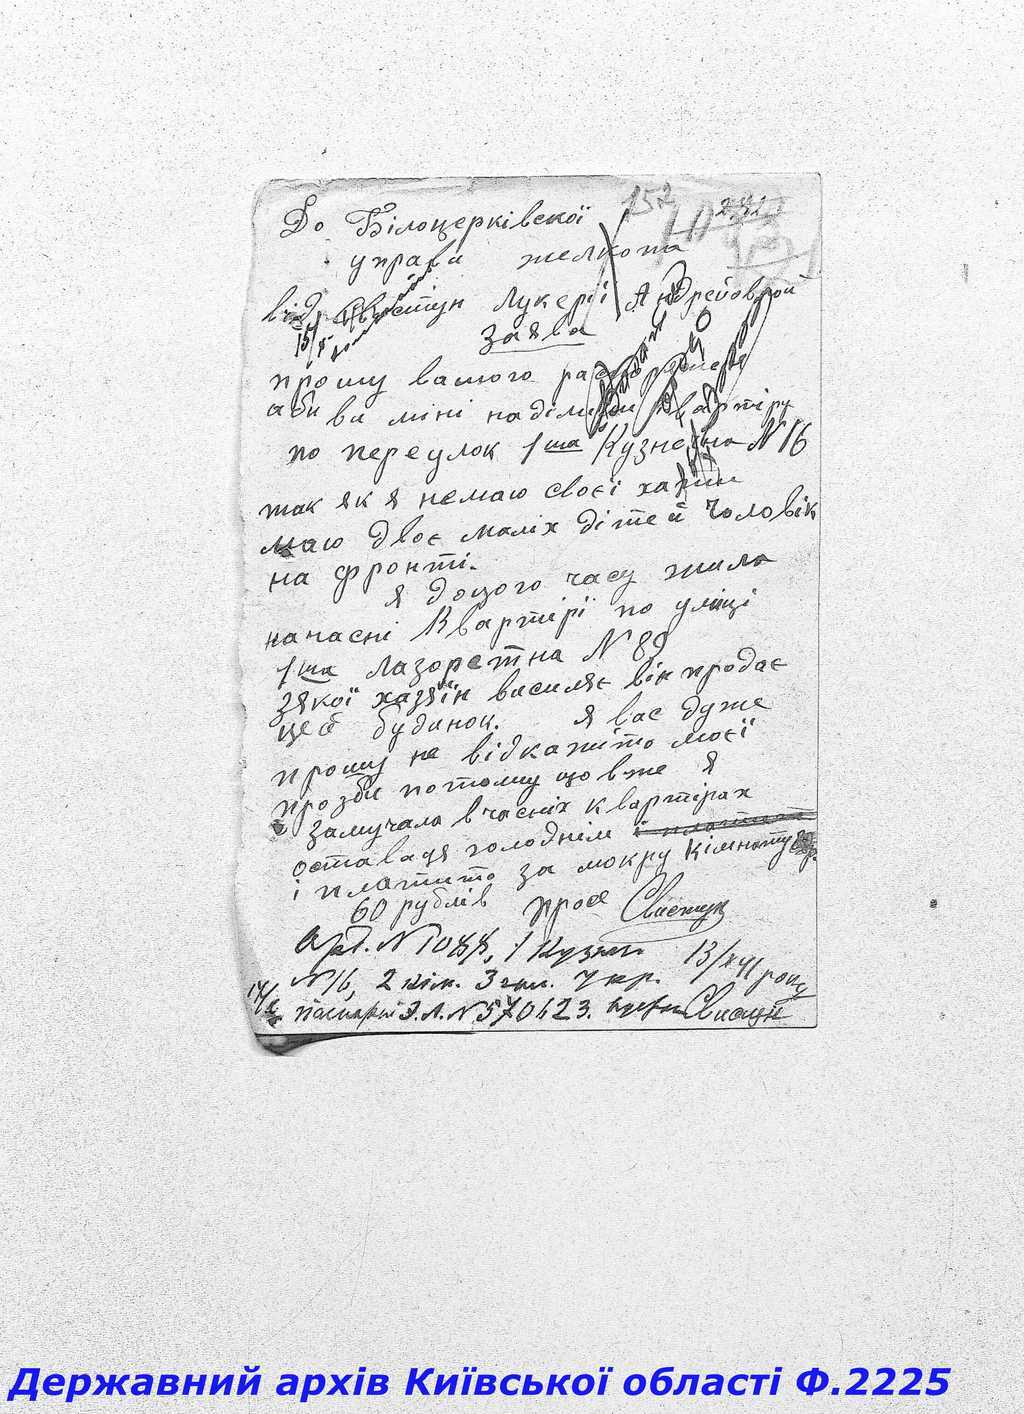 157 282
До Білоцерківскої
управи желкопа
від Свистун Лукерії Андрейовной
15/X
заява
прошу вашого
аби ви міні наділили квартіру
по переулок 1ша Кузнечна N 16
так як я немаю своєї хати
маю двоє маліх дітей Чоловік
на фронті.
я доцого часу жила
начасні Квартірі по уліці
1ша Лазоретна N 89
зякої хазяїн василяє він продає
цеб будинок. я вас дуже
прошу не відкажіто моєї
прозби потому що вже я
замучала вчасніх квартірах
оставаця голоднім і платит
і платито за мокру кімноту
60 рублів прос Свистун
Орд. N 1088, 1 Кузнеч 13/XII року
N16, 2 кім. 3 чол. Укр.
14/X Паспорт Э.Л. N 570623. Свистун
Державний архів Київської області Ф.2225